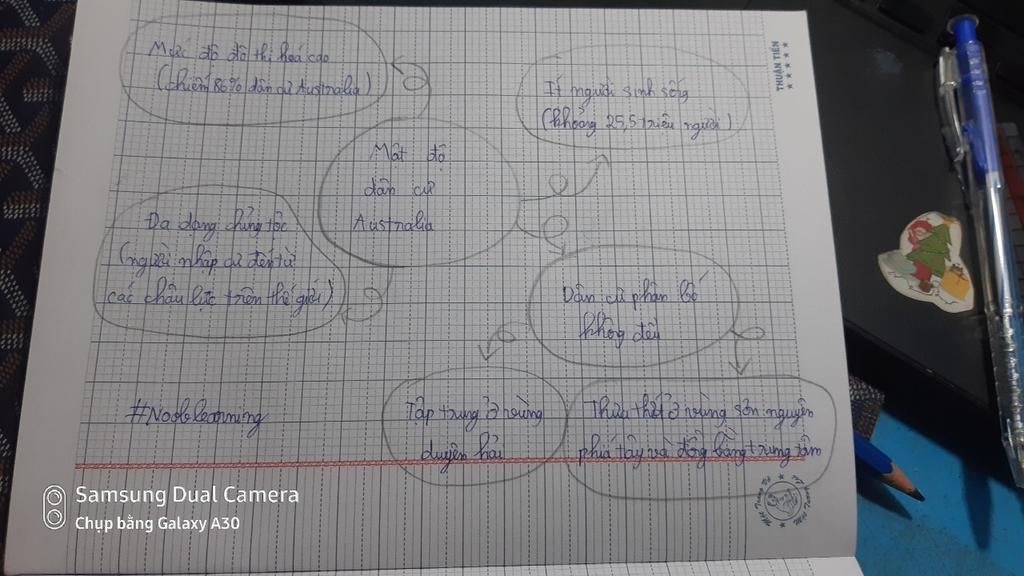 Mức độ đô thị hoá cao
(chiếm 86% dân cư Australia)
Ít người sinh sống
(khoảng 25,5 triệu người)
Mật độ
dân cư
Australia
Đa dạng chủng tộc
(người nhập cư đến từ
các châu lục trên thế giới)
Dân cư phân bố
không đều
Tập trung ở vùng
duyên hải
Thưa thớt ở vùng sơn nguyên
phía tây và đồng bằng trung tâm
#Nooblearning
THUẬN TIẾN
Samsung Dual Camera
Chụp bằng Galaxy A30